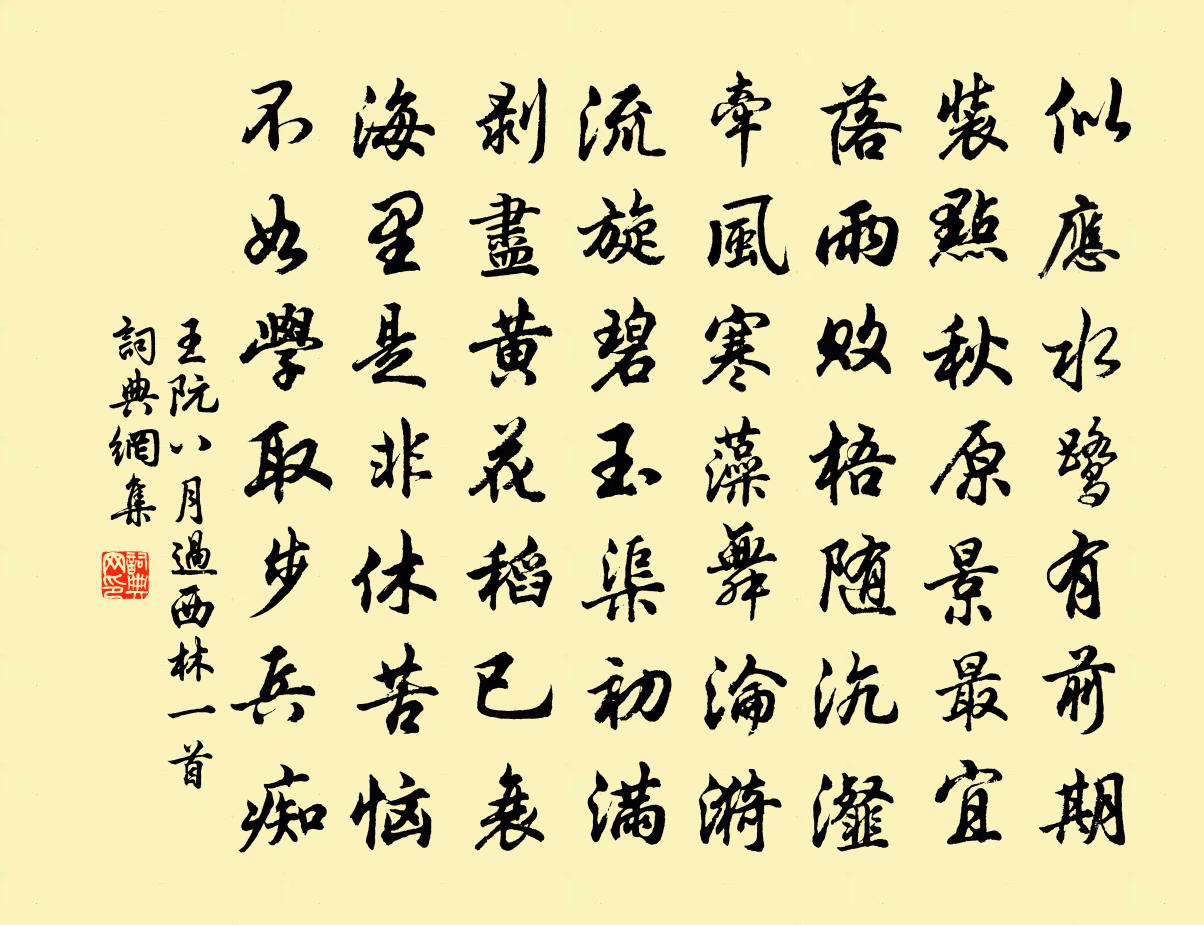 似應水鹭有前期
裝點秋原景最宜
落雨敗梧随沆灉
牽風寒藻舞淪漪
流旋碧玉渠初滿
剥盡黄花稻已衰
海里是非休苦恼
不如學取步兵痴
王阮八月過西林一首
詞典網集
詞典网印